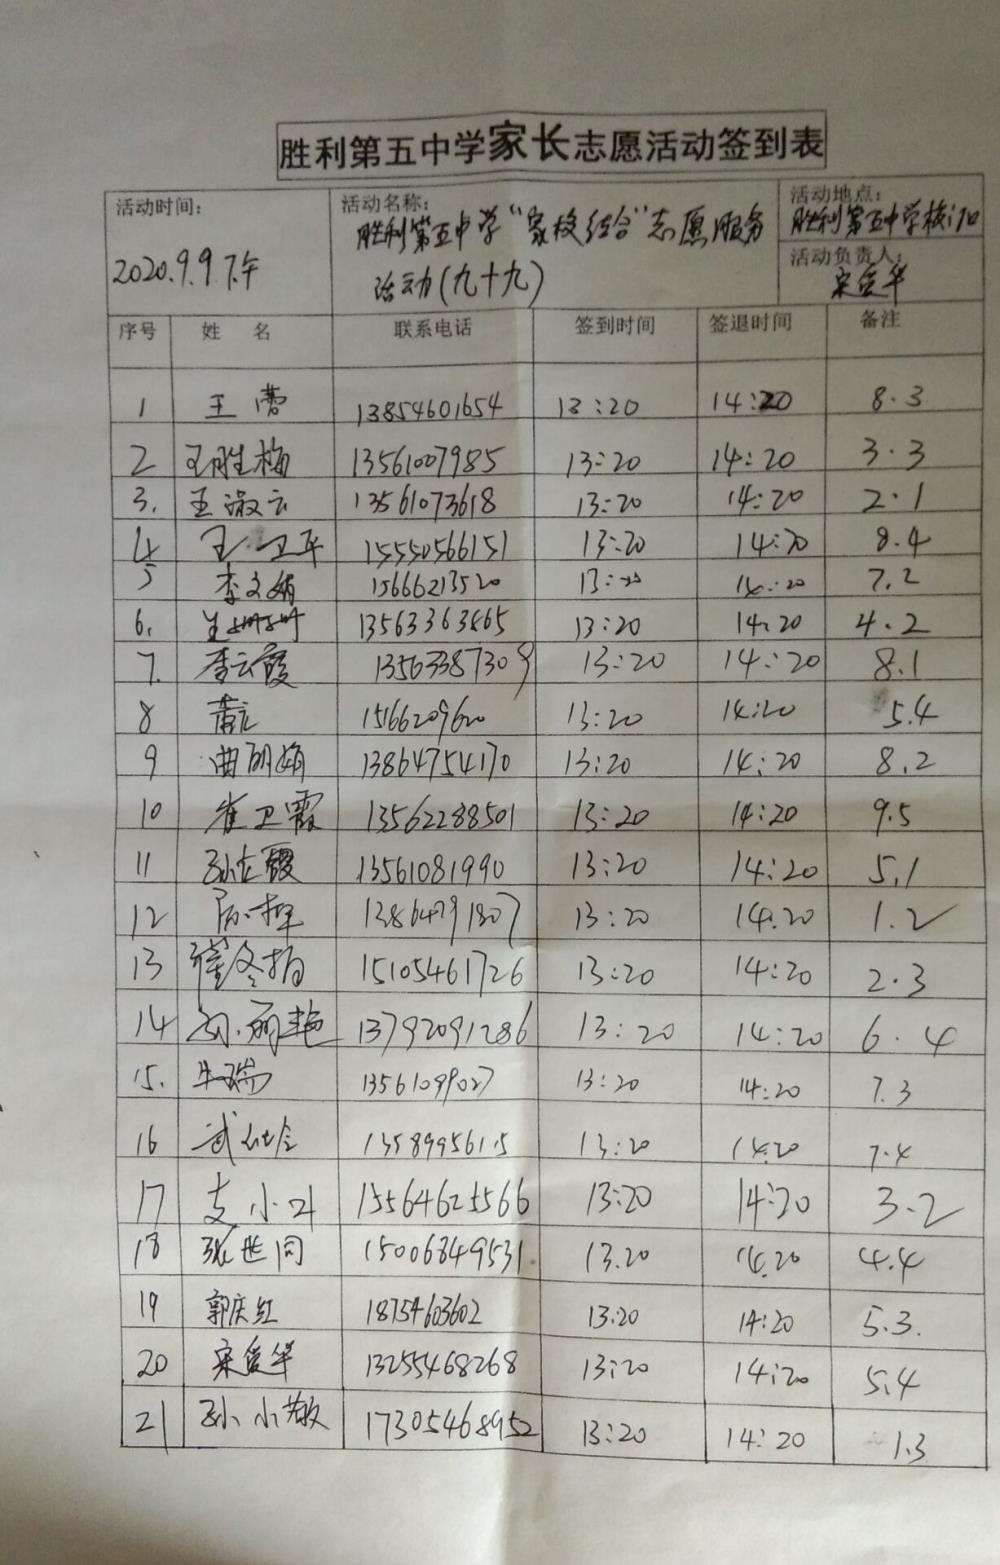 胜利第五中学家长志愿活动签到表
活动时间: 2020.9.9 下午
活动名称: 胜利第五中学“家校结合”志愿服务
活动(九十九)
活动地点: 胜利第五中学校门口
活动负责人: 宋爱华
序号 姓 名 联系电话 签到时间 签退时间 备注
1 王蕾 13854601654 13:20 14:20 8.3
2 王胜梅 13561007985 13:20 14:20 3.3
3. 王淑云 13561073618 13:20 14:20 2.1
4 王卫平 15550566151 13:20 14:20 8.4
5 李文娟 15666213520 13:20 14:20 7.2
6. 13563363865 13:20 14:20 4.2
7. 李云霞 13563387309 13:20 14:20 8.1
8 15166209620 13:20 14:20 5.4
9 曲丽娟 13864754170 13:20 14:20 8.2
10 崔卫霞 13562288501 13:20 14:20 9.5
11 13561081990 13:20 14:20 5.1
12 13864791807 13:20 14.20 1.2
13 15105461726 13:20 14:20 2.3
14 孙丽艳 13792091286 13:20 14:20 6.4
15. 牛瑞 13561099027 13:20 14:20 7.3
16 13:20 14:20 7.4
17 支小叶 15564625566 13:20 14:20 3.2
18 张世同 15006849531 13.20 14.20 4.4
19 郭庆红 18754603602 13:20 14:20 5.3.
20 宋爱华 13255468268 13:20 14:20 5.4
21 孙小敏 17305468952 13:20 14:20 1.3